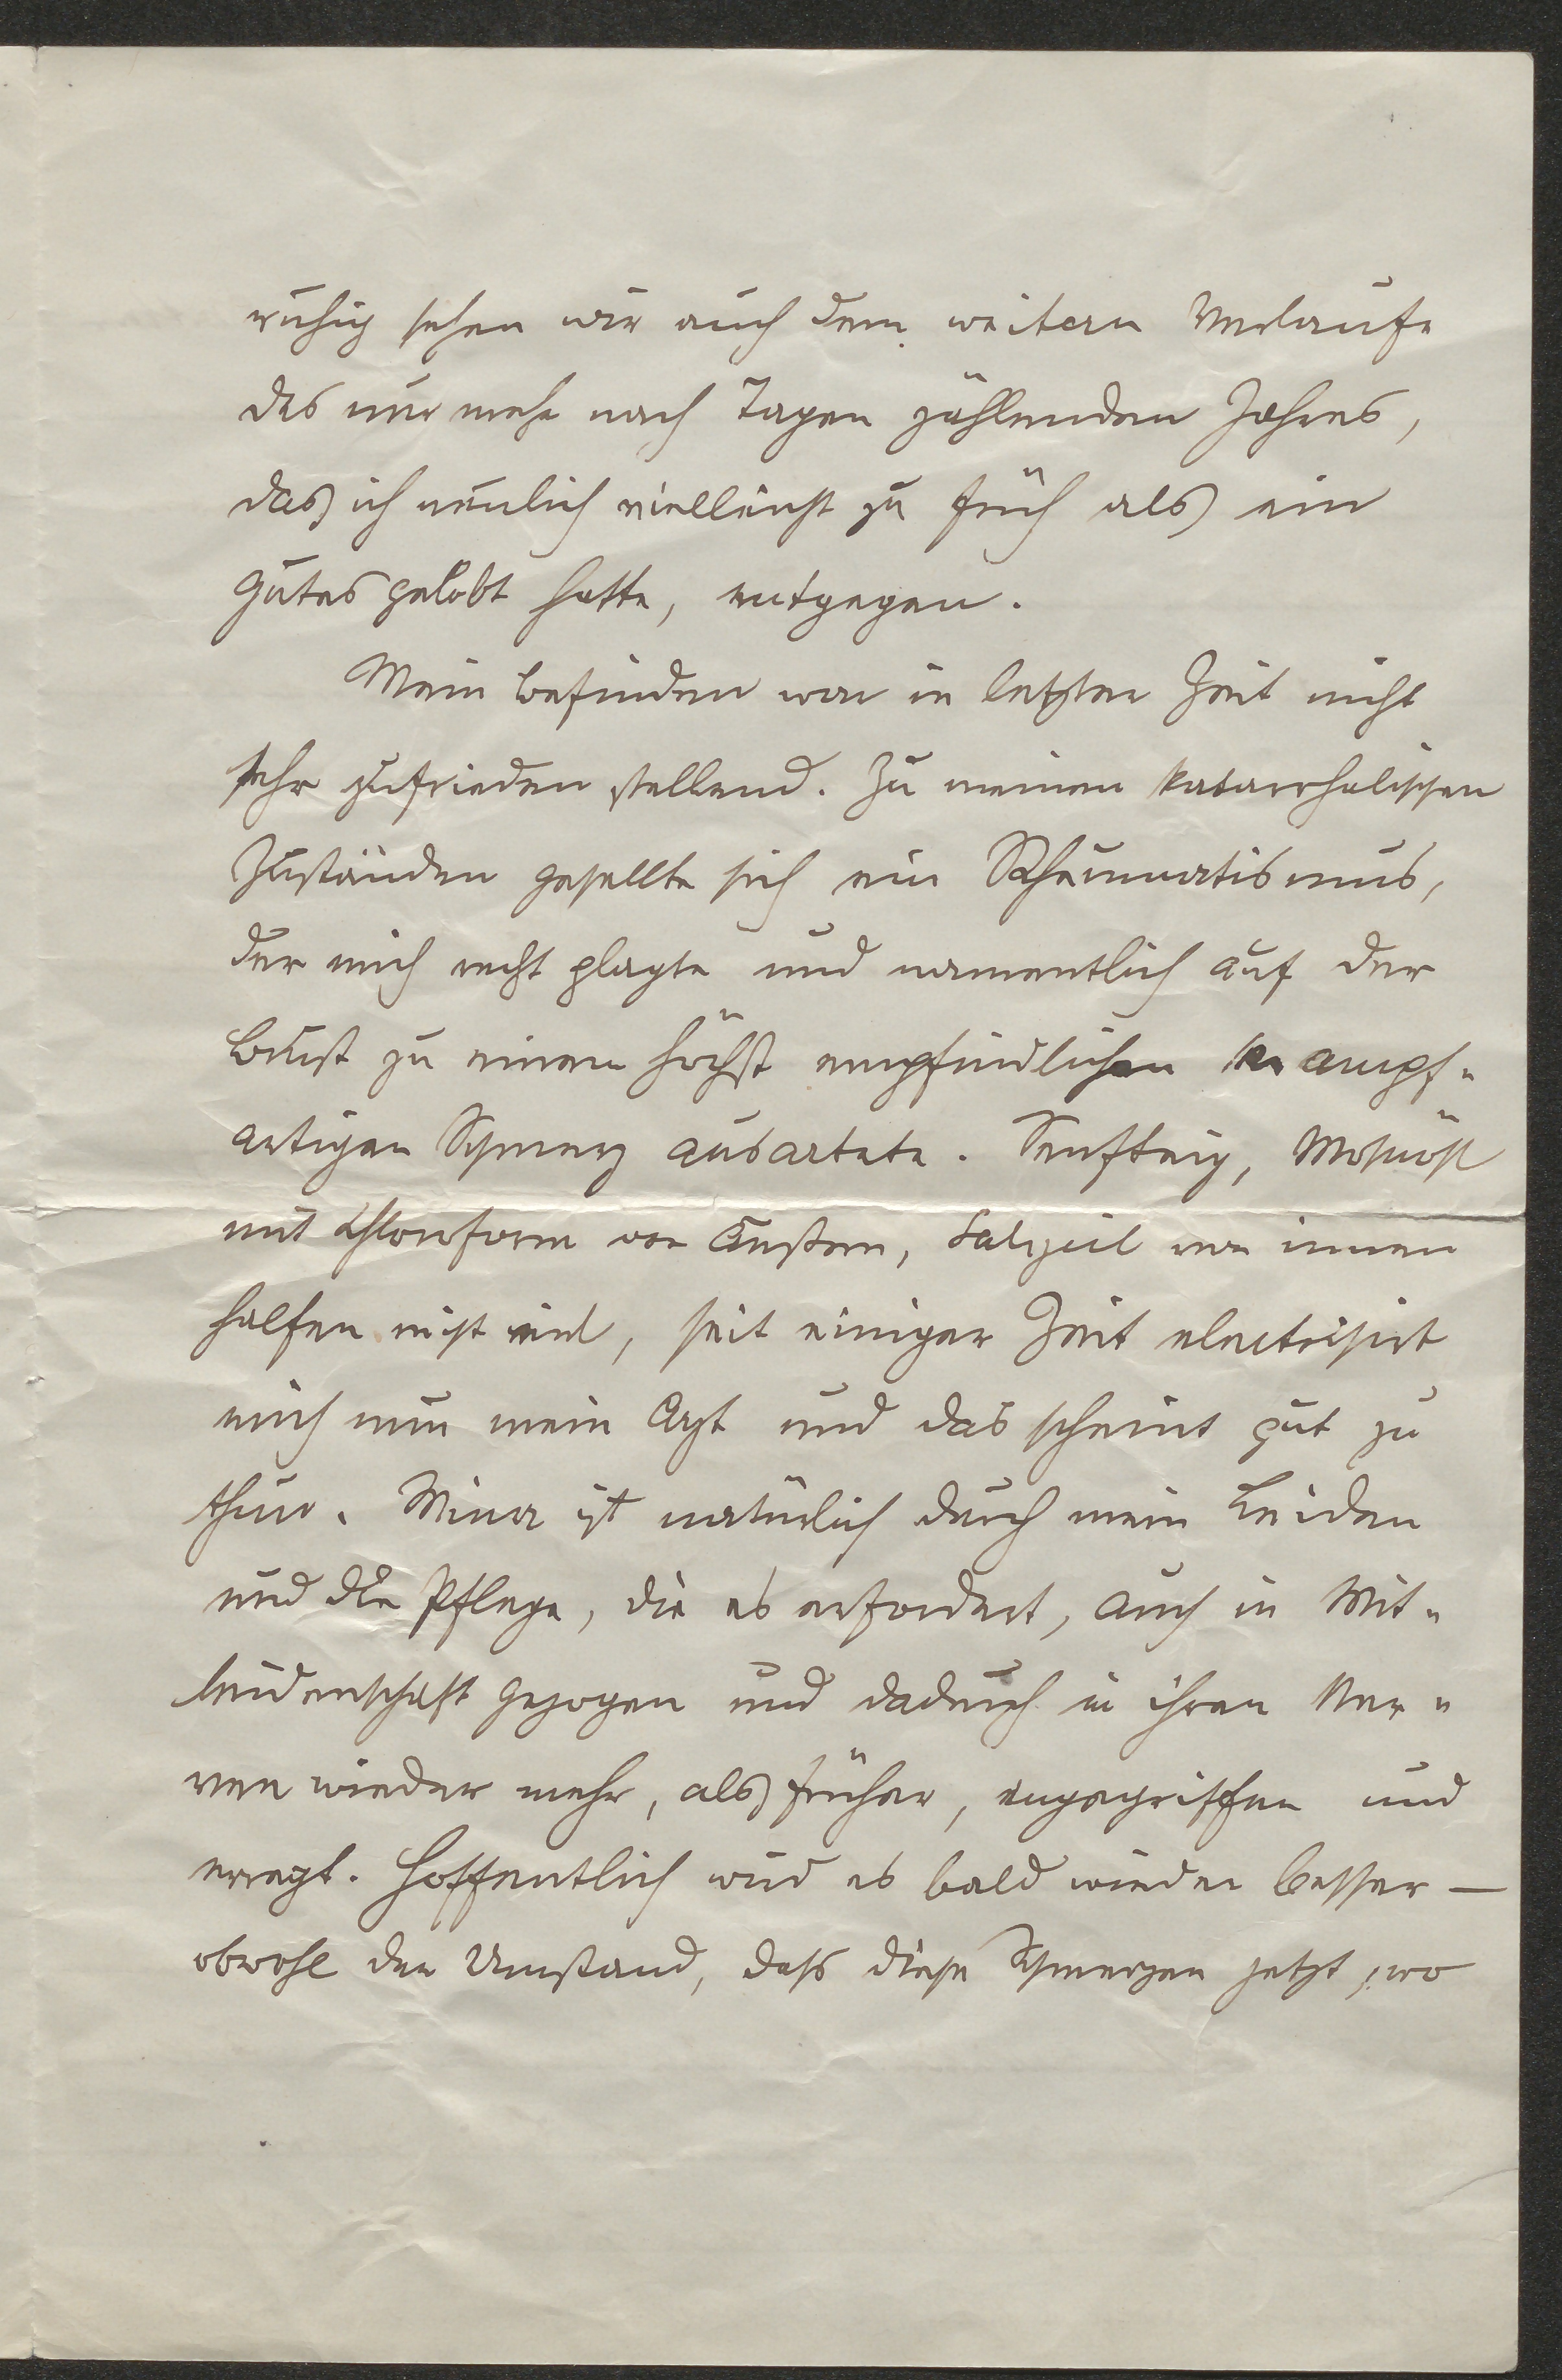 ruhig sehen wir auch dem weitern Verlaufe
des nur mehr nach Tagen zählenden Jahres,
das ich neulich vielleicht zu früh als ein
gutes gelobt hatte, entgegen.
Mein Befinden war in letzter Zeit nicht
sehr zufrieden stellend. Zu meinen katarrhalischen
Zuständen gesellte sich ein Rheumatismus,
der mich recht plagte und namentlich auf der
Brust zu einem höchst empfindlichen krampf-
artigen Schmerz ausartete. Senfteig, Mohnöl
mit Chloroform von Außen, Salzyil von innen
halfen nicht viel, seit einiger Zeit electrisirt
mich nun mein Arzt und das scheint gut zu
thun. Mina ist natürlich durch mein Leiden
und die Pflege, die es erfordert, auch in Mit-
leidenschaft gezogen und dadurch in ihren Ner-
ven wieder mehr, als früher, angegriffen und
erregt. Hoffentlich wird es bald wieder besser —
obwohl der Umstand, daß diese Schmerzen jetzt, wo